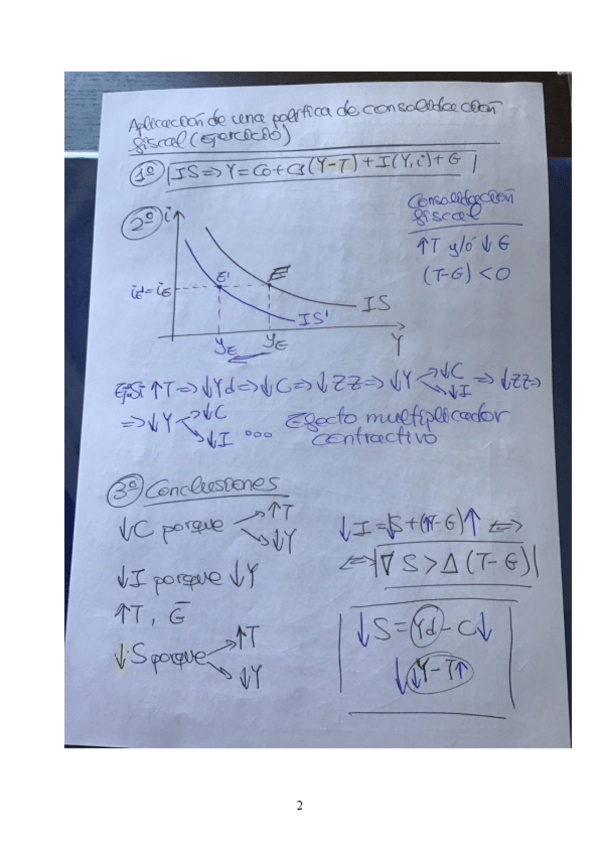 Aplicación de una política de consolidación
fiscal (ejercicio)
1º IS ⇒ Y = C0 + C1 (Y-T) + I (Y, i) + G
Consolidación
fiscal
↑T y/ó ↓G
(T-G) < 0
2º i
E' E
iE' = iE
IS
IS'
YE YE Y
↑T ⇒ ↓Yd ⇒ ↓C ⇒ ↓ZZ ⇒ ↓Y ↓C ↓I ⇒ ↓ZZ ⇒
⇒ ↓Y ↓C ↓I ... Efecto multiplicador
contractivo
3º Conclusiones
↓C porque ↑T ↓Y
↓I porque ↓Y
↑T, G̅
↓S porque ↑T ↓Y
↓I = ↓S + (↑T-G)↑ ⇔
⇔ ∇S > Δ(T-G)
↓S = Yd - C↓
↓↓Y-T↑
2